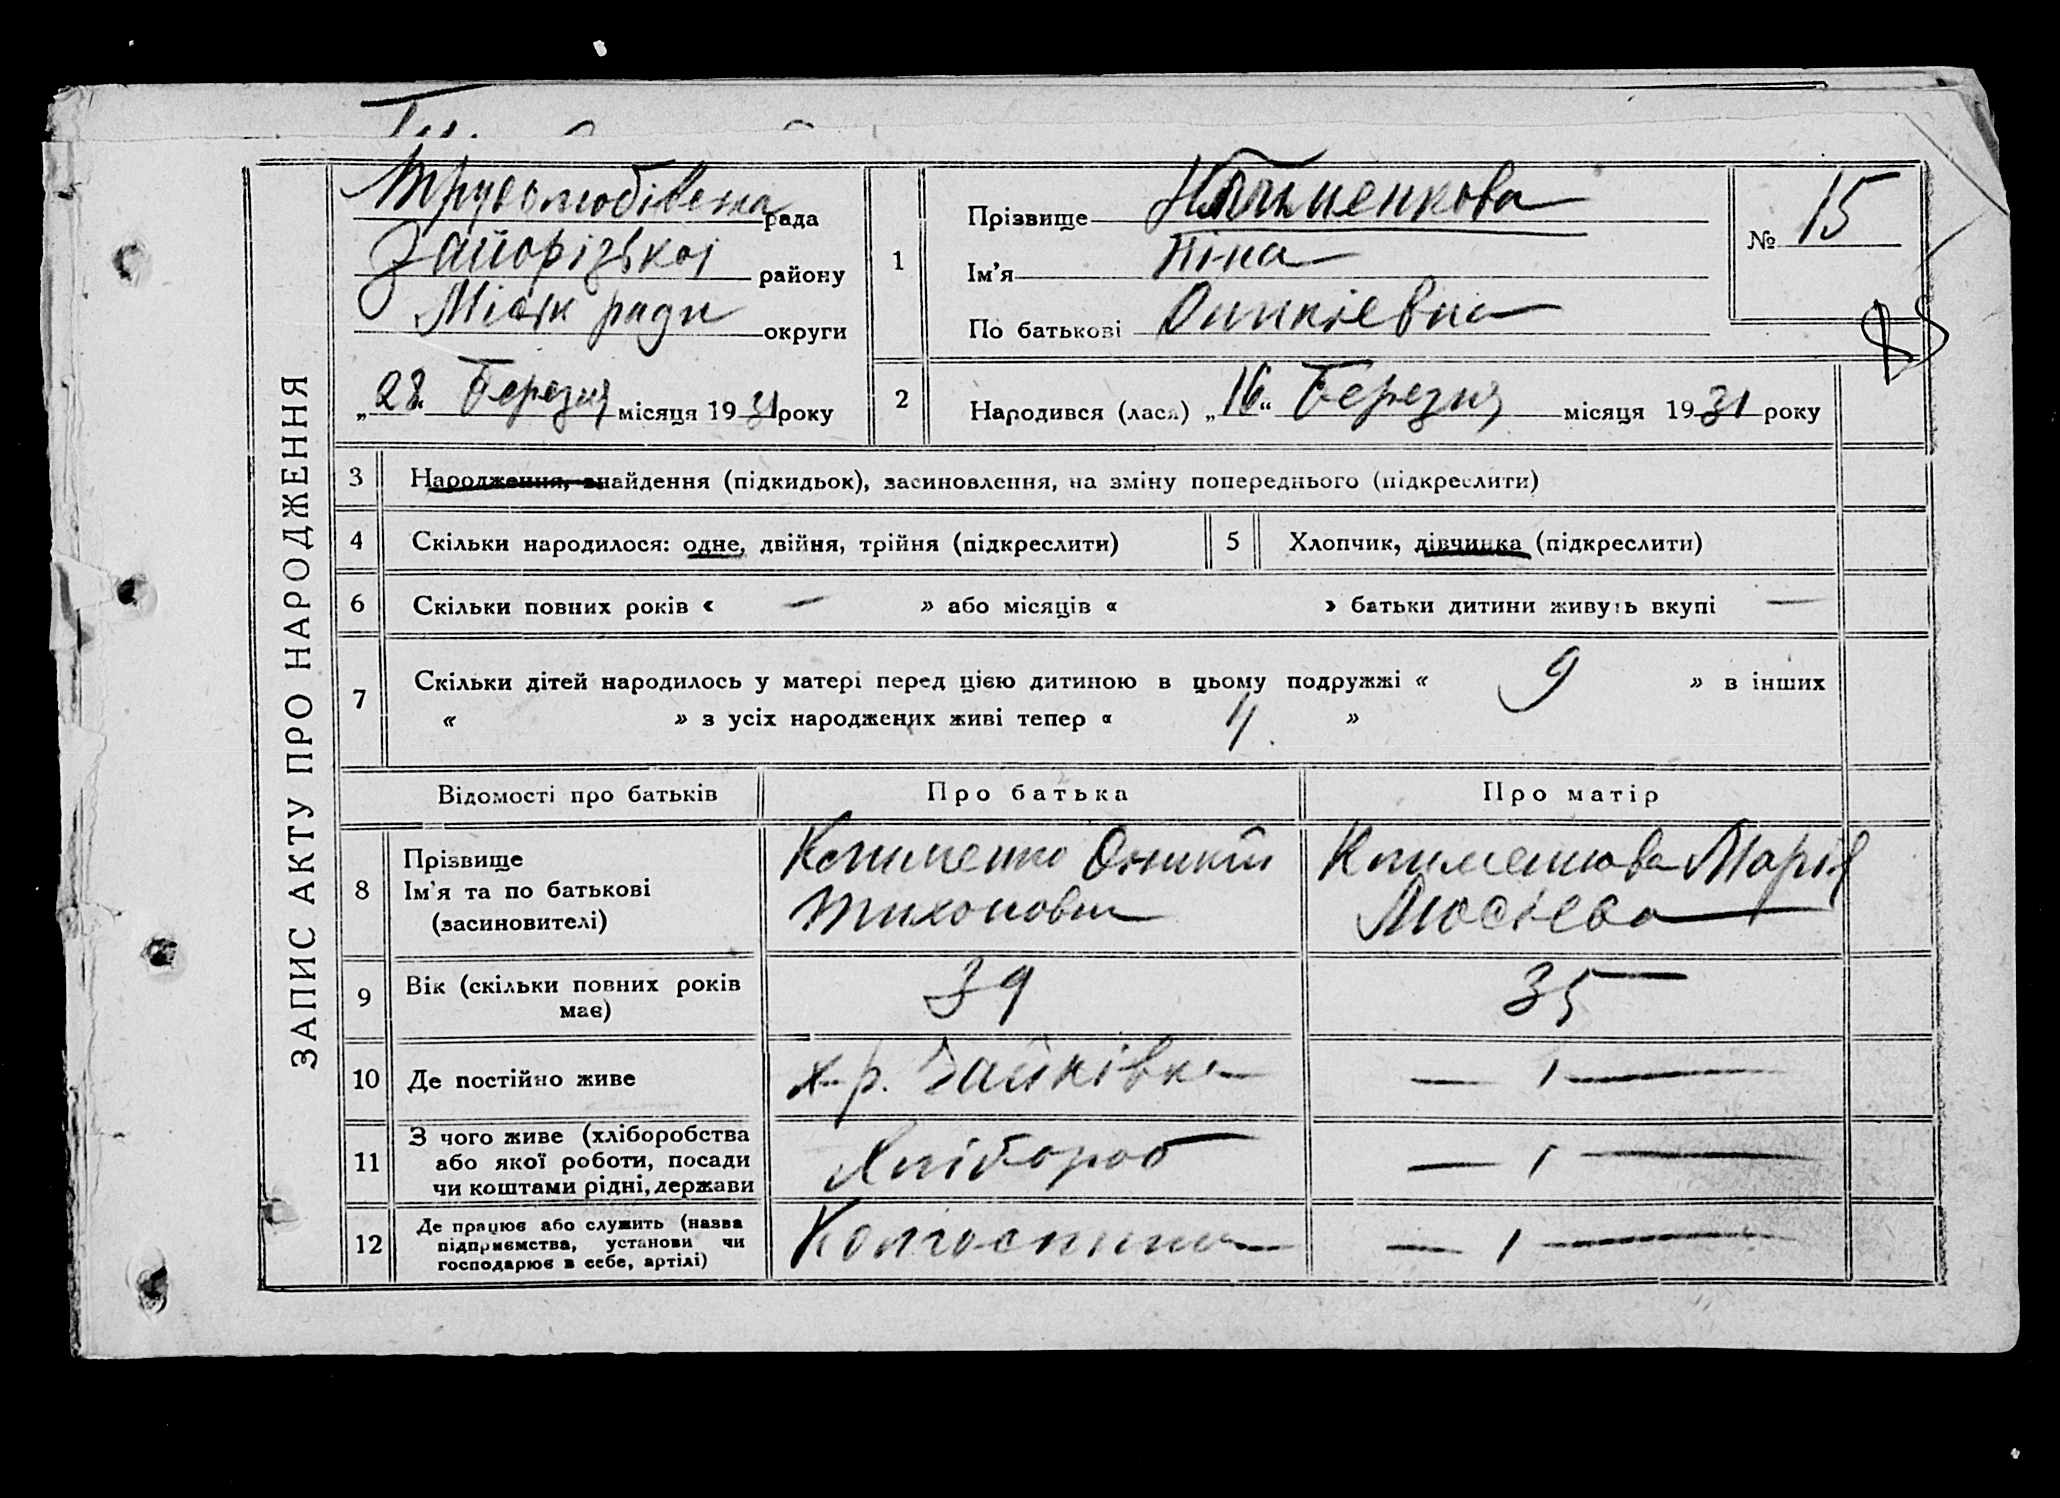 ЗАПИС АКТУ ПРО НАРОДЖЕННЯ
Трудолюбівська рада
Запорізької району
Міськ ради округи
„28. Березня місяця 1931 року
1
Прізвище Клыменкова
Ім'я Ніна
По батькові Оникіевна
№ 15
2
Народився (лася) „16“ Березня місяця 1931 року
3 Народження, знайдення (підкидьок), засиновлення, на зміну попереднього (підкреслити)
4 Скільки народилося: одне, двійня, трійня (підкреслити)
5 Хлопчик, дівчинка (підкреслити)
6 Скільки повних років « — » або місяців « » батьки дитини живуть вкупі —
7 Скільки дітей народилось у матері перед цією дитиною в цьому подружжі « 9 » в інших
« » з усіх народжених живі тепер « 4 »
Відомості про батьків Про батька Про матір
8 Прізвище
Ім'я та по батькові
(засиновителі)
Клименко Оникій
Тихонович
Клименкова Марія
Мосіева
9 Вік (скільки повних років
має)
39
35
10 Де постійно живе
х-р. Зайківка
— 1 —
11 З чого живе (хліборобства
або якої роботи, посади
чи коштами рідні, держави
Хлібороб
— 1 —
12 Де працює або служить (назва
підприємства, установи чи
господарює в себе, артілі)
— 1 —